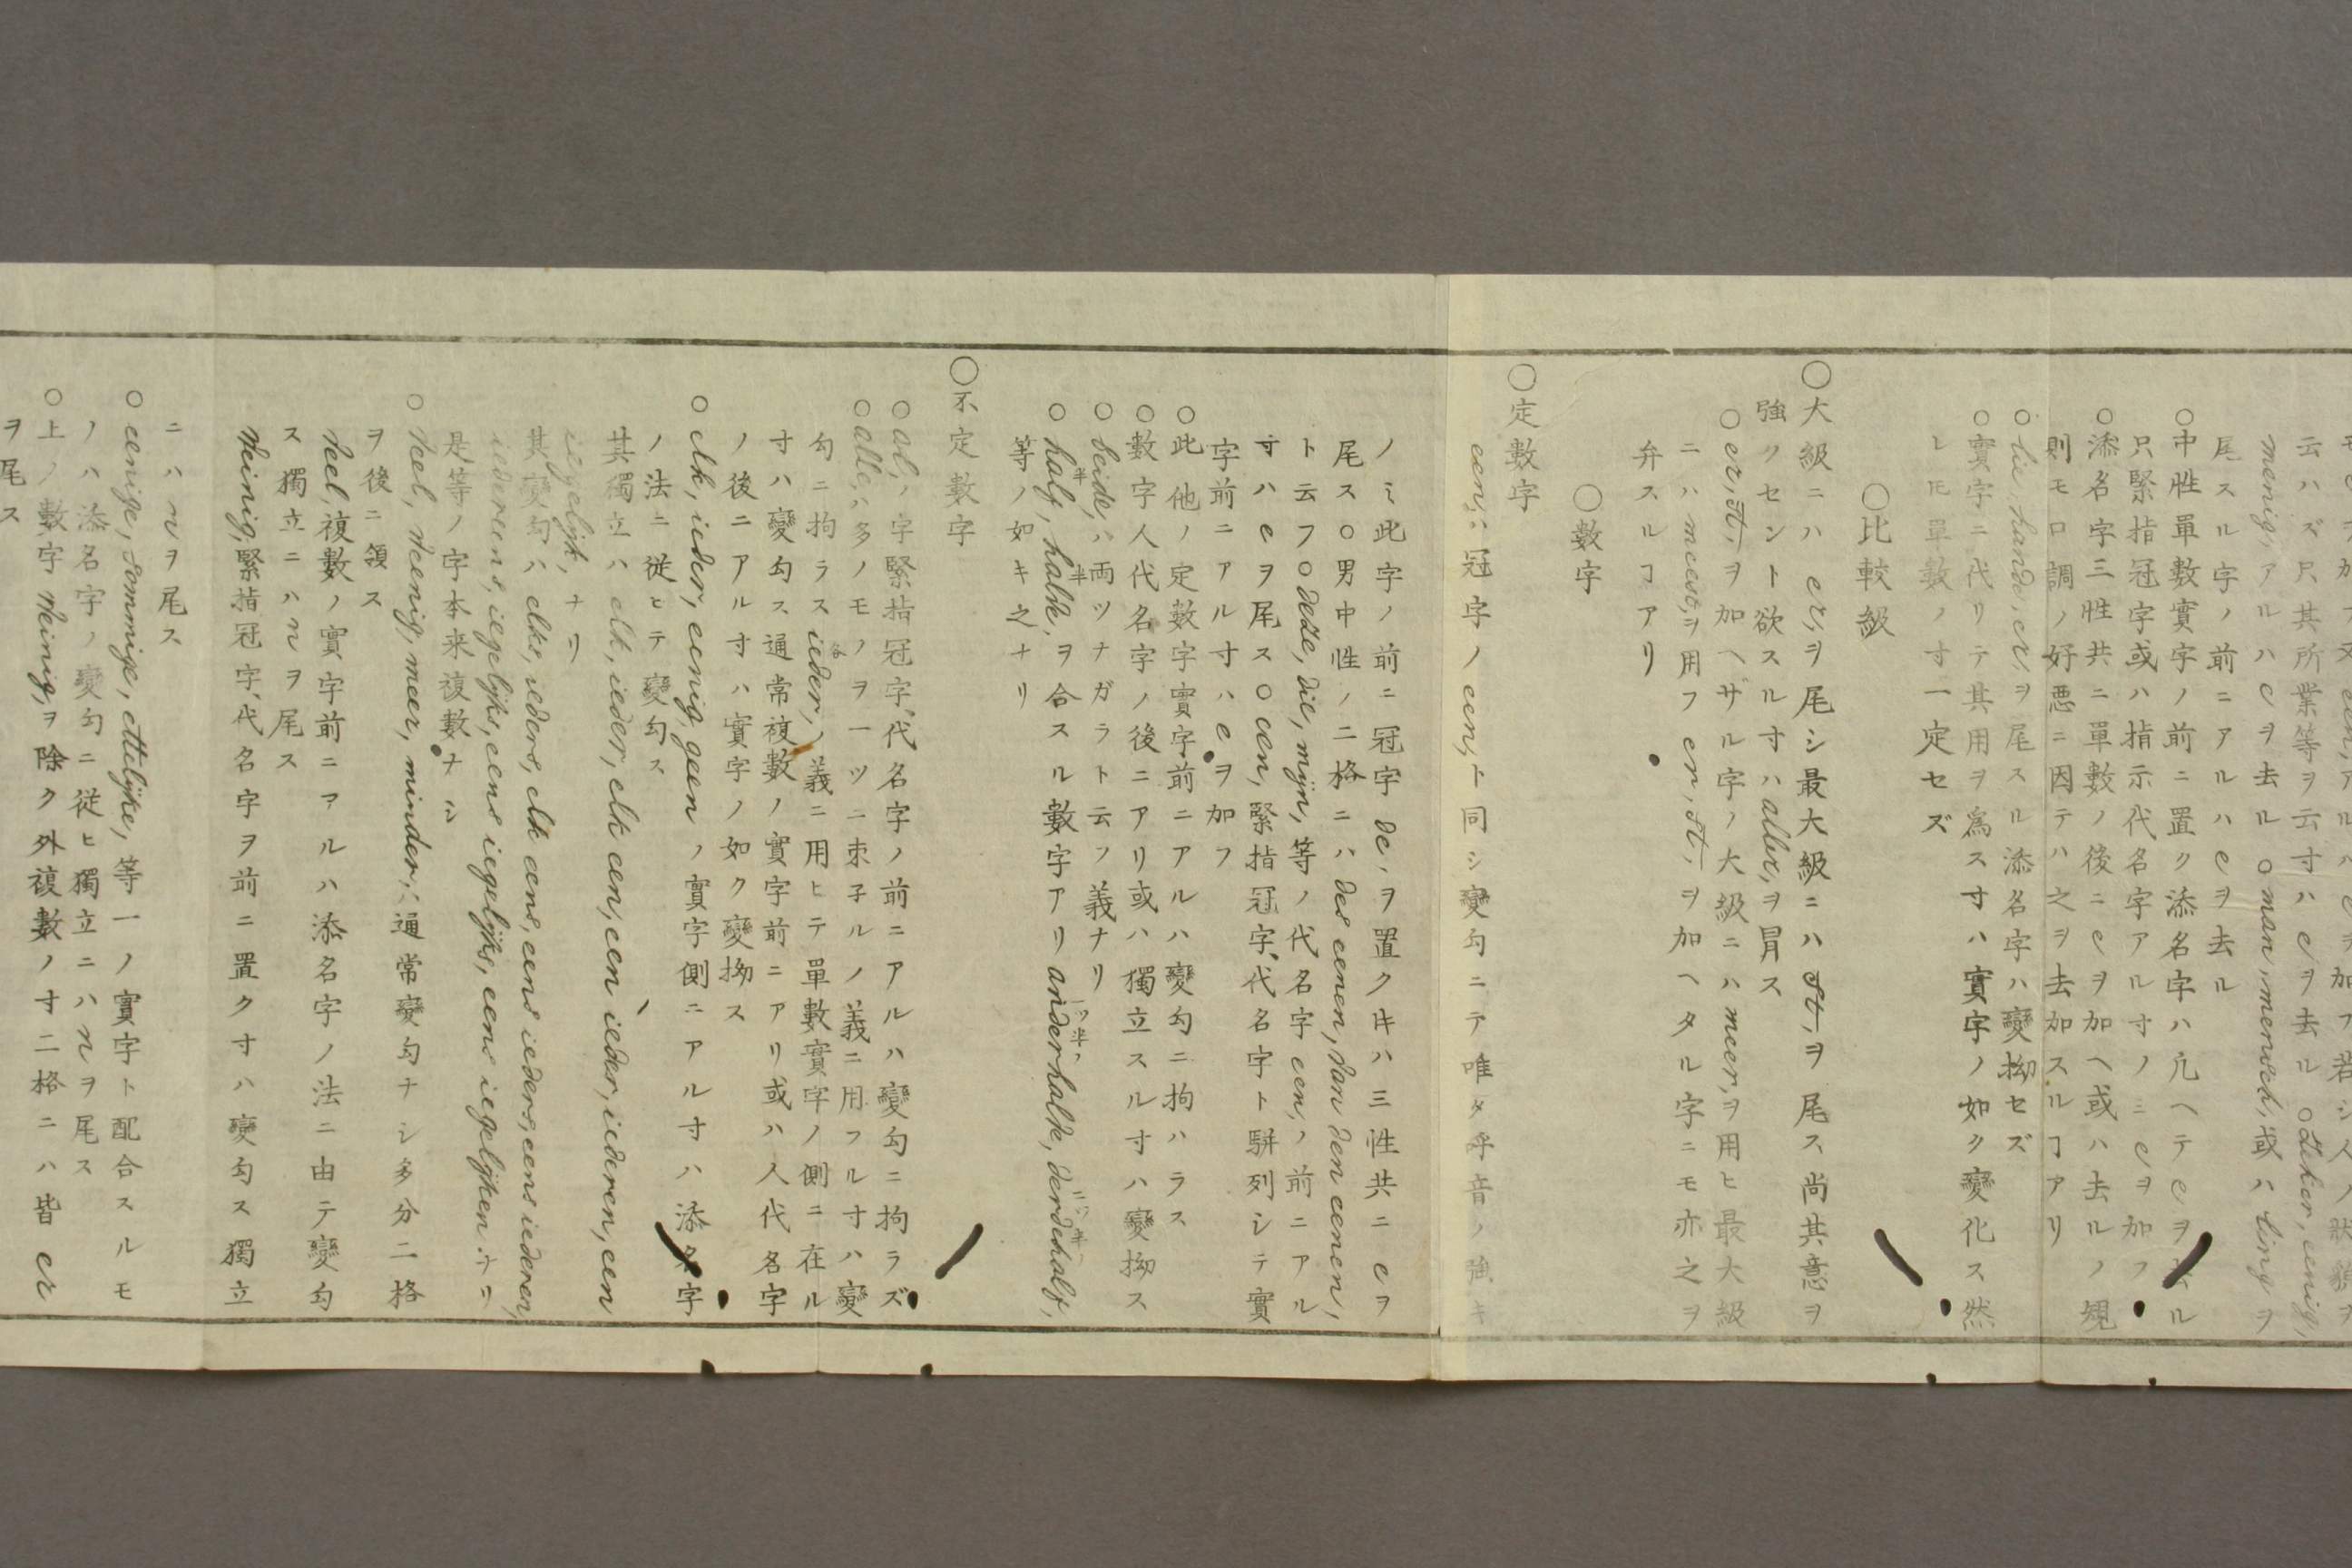 云ハズ只其所業等ヲ云寸ハeヲ去ル ○zeker, eenig,
menig,アルハeヲ去ル ○man, mensch,或ハlingヲ
尾スル字ノ前ニアルハeヲ去ル
○中性單數實字ノ前ニ置ク添名字ハ凢ヘテeヲ去ル
只緊指冠字或ハ指示代名字アル寸ノミeヲ加フ
○添名字三性共ニ單數ノ後ニeヲ加ヘ或ハ去ルノ規
則モ口調ノ好悪ニ因テハ之ヲ去加スルヿアリ
○lie, hande, er,ヲ尾スル添名字ハ變拗セズ
○實字ニ代リテ其用ヲ爲ス寸ハ實字ノ如ク變化ス然
レ𪜈單數ノ寸一定セズ
○比較級
○大級ニハer,ヲ尾シ最大級ニハst,ヲ尾ス尚其意ヲ
強クセント欲スル寸ハaller,ヲ冐ス
○er, st,ヲ加ヘザル字ノ大級ニハmeer,ヲ用ヒ最大級
ニハmeest,ヲ用フ er, st,ヲ加ヘタル字ニモ亦之ヲ
弁スルヿアリ
○數字
○定數字
een,ハ冠字ノeen,ト同シ變勾ニテ唯タ呼音ノ強キ
ノミ此字ノ前ニ冠字de,ヲ置ク𪜈ハ三性共ニeヲ
尾ス○男中性ノ二格ニハdes eenen, van den eenen,
ト云フ○deze, die, mijn,等ノ代名字een,ノ前ニアル
寸ハeヲ尾ス○een,緊指冠字、代名字ト駢列シテ實
字前ニアル寸ハeヲ加フ
○此他ノ定數字實字前ニアルハ變勾ニ拘ハラス
○數字人代名字ノ後ニアリ或ハ獨立スル寸ハ變拗ス
○beide,ハ両ツナガラト云フ義ナリ
○half,半 halve,半ヲ合スル數字アリanderhalve,一ツ半 derdehalf,二ツ半
等ノ如キ之ナリ
○不定數字
○al,ノ字緊指冠字、代名字ノ前ニアルハ變勾ニ拘ラズ
○alle,ハ多ノモノヲ一ツニ束子ルノ義ニ用フル寸ハ變
勾ニ拘ラス ieder,ノ義ニ用ヒテ單數實字ノ側ニ在ル
寸ハ變勾ス通常複數ノ實字前ニアリ或ハ人代名字
ノ後ニアル寸ハ實字ノ如ク變拗ス
○elk, ieder, eenig, geen ノ實字側ニアル寸ハ添名字
ノ法ニ従ヒテ變勾ス
其獨立ハelk, ieder, elk een, een ieder, iederen, een
iegelijk,ナリ
其變勾ハelks, ieders, elk eens, eens ieders, eens iederen,
iederens, iegelijks, eens iegelijks, eens iegelijken ナリ
是等ノ字本来複數ナシ
○veel, weenig, meer, minder,ハ通常變勾ナシ多分二格
ヲ後ニ領ス
veel,複數ノ實字前ニアルハ添名字ノ法ニ由テ變勾
ス獨立ニハnヲ尾ス
weinig,緊指冠字、代名字ヲ前ニ置ク寸ハ變勾ス獨立
ニハnヲ尾ス
○eenige, sommige, ettelijke,等一ノ實字ト配合スルモ
ノハ添名字ノ變勾ニ従ヒ獨立ニハnヲ尾ス
○上ノ數字weinig,ヲ除ク外複數ノ寸二格ニハ皆er
ヲ尾ス